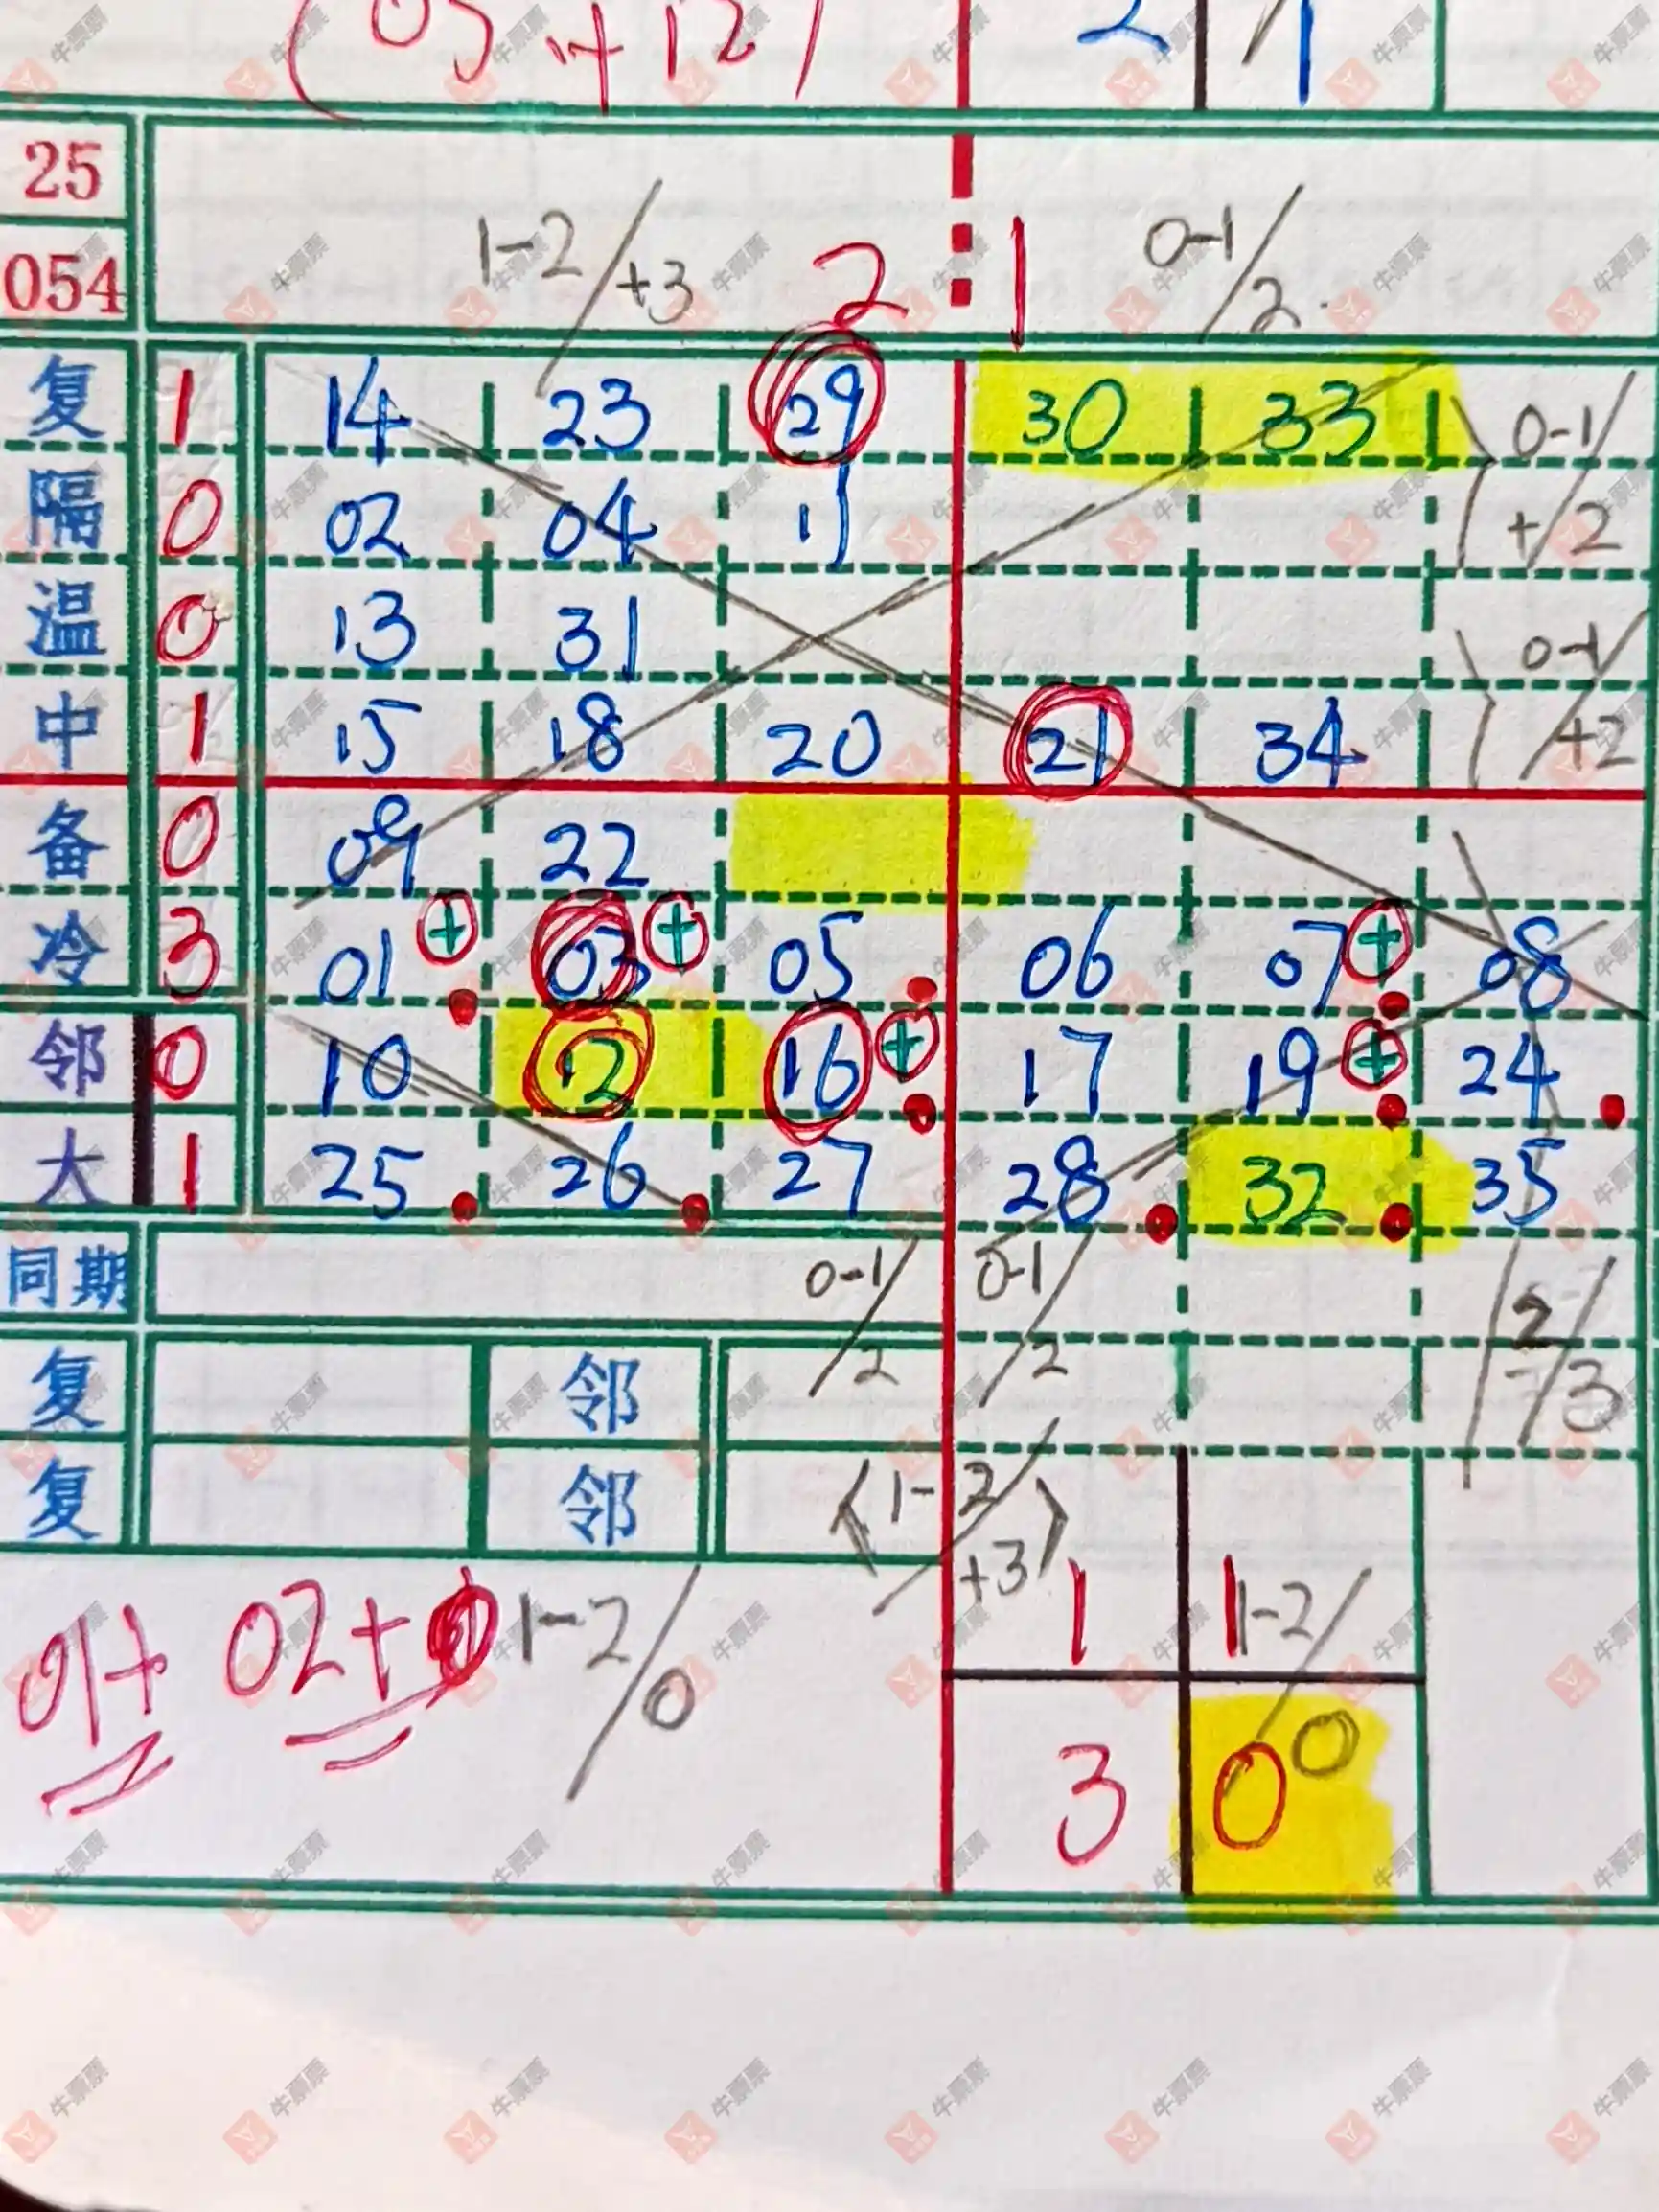 (05 + 12) 2 1
25
054 1-2/+3 2 1 0-1/2
复 1 14 23 29 30 33 0-1/+2
隔 0 02 04 11
温 0 13 31 0-1/+2
中 1 15 18 20 21 34
备 0 09 22
冷 3 01 + 03 + 05 06 07 + 08
邻 0 10 12 16 + 17 19 + 24
大 1 25 26 27 28 32 35
同期 0-1/2 0-1/2 2/3
复 邻
复 邻 <1-2/+3>
01+ 02+ 1-2/0 1 1 1-2/0
3 0
牛票票